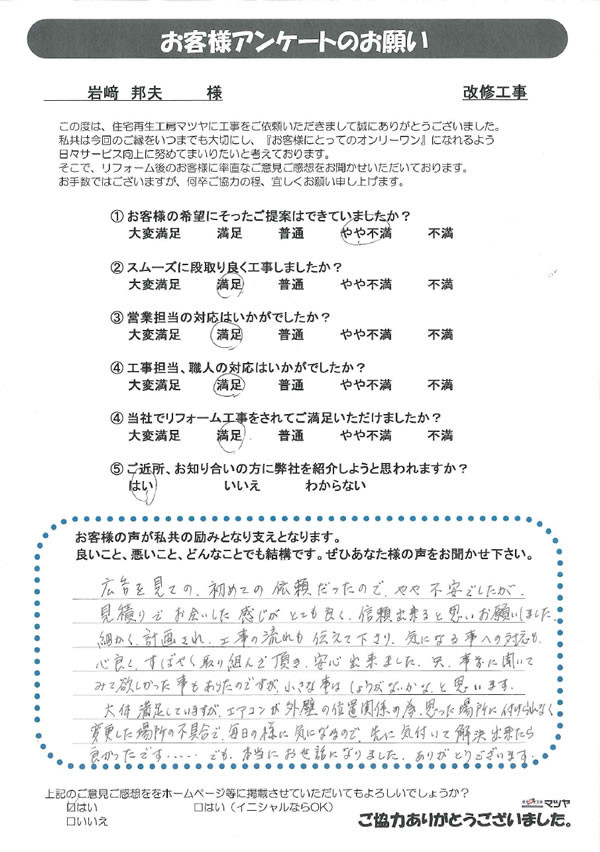 お客様アンケートのお願い
岩﨑 邦夫 様 改修工事
この度は、住宅再生工房マツヤに工事をご依頼いただきまして誠にありがとうございました。
私共は今回のご縁をいつまでも大切にし、『お客様にとってのオンリーワン』になれるよう
日々サービス向上に努めてまいりたいと考えております。
そこで、リフォーム後のお客様に率直なご意見ご感想をお聞かせいただいております。
お手数ではございますが、何卒ご協力の程、宜しくお願い申し上げます。
① お客様の希望にそったご提案はできていましたか？
大変満足 満足 普通 やや不満 不満
② スムーズに段取り良く工事しましたか？
大変満足 満足 普通 やや不満 不満
③ 営業担当の対応はいかがでしたか？
大変満足 満足 普通 やや不満 不満
④ 工事担当、職人の対応はいかがでしたか？
大変満足 満足 普通 やや不満 不満
④ 当社でリフォーム工事をされてご満足いただけましたか？
大変満足 満足 普通 やや不満 不満
⑤ ご近所、お知り合いの方に弊社を紹介しようと思われますか？
はい いいえ わからない
お客様の声が私共の励みとなり支えとなります。
良いこと、悪いこと、どんなことでも結構です。ぜひあなた様の声をお聞かせ下さい。
広告を見ての、初めての依頼だったので、やや不安でしたが、
見積りでお会いした感じがとても良く、信頼出来ると思いお願いしました。
細かく、計画され、工事の流れも伝えて下さり、気になる事への対応も、
心良く、すばやく取り組んで頂き、安心出来ました。只、事前に聞いて
みて欲しかった事もあったのですが、小さな事はしょうがないかな、と思います。
大体満足していますが、エアコンが外壁の位置関係の為、思った場所に付けられなく
変更した場所の不具合で、毎日の様に気になるので、先に気付いて解決出来たら
良かったです..... でも、本当にお世話になりました。ありがとうございます。
上記のご意見ご感想ををホームページ等に掲載させていただいてもよろしいでしょうか？
☑はい □はい（イニシャルならOK）
□いいえ
マツヤ
ご協力ありがとうございました。